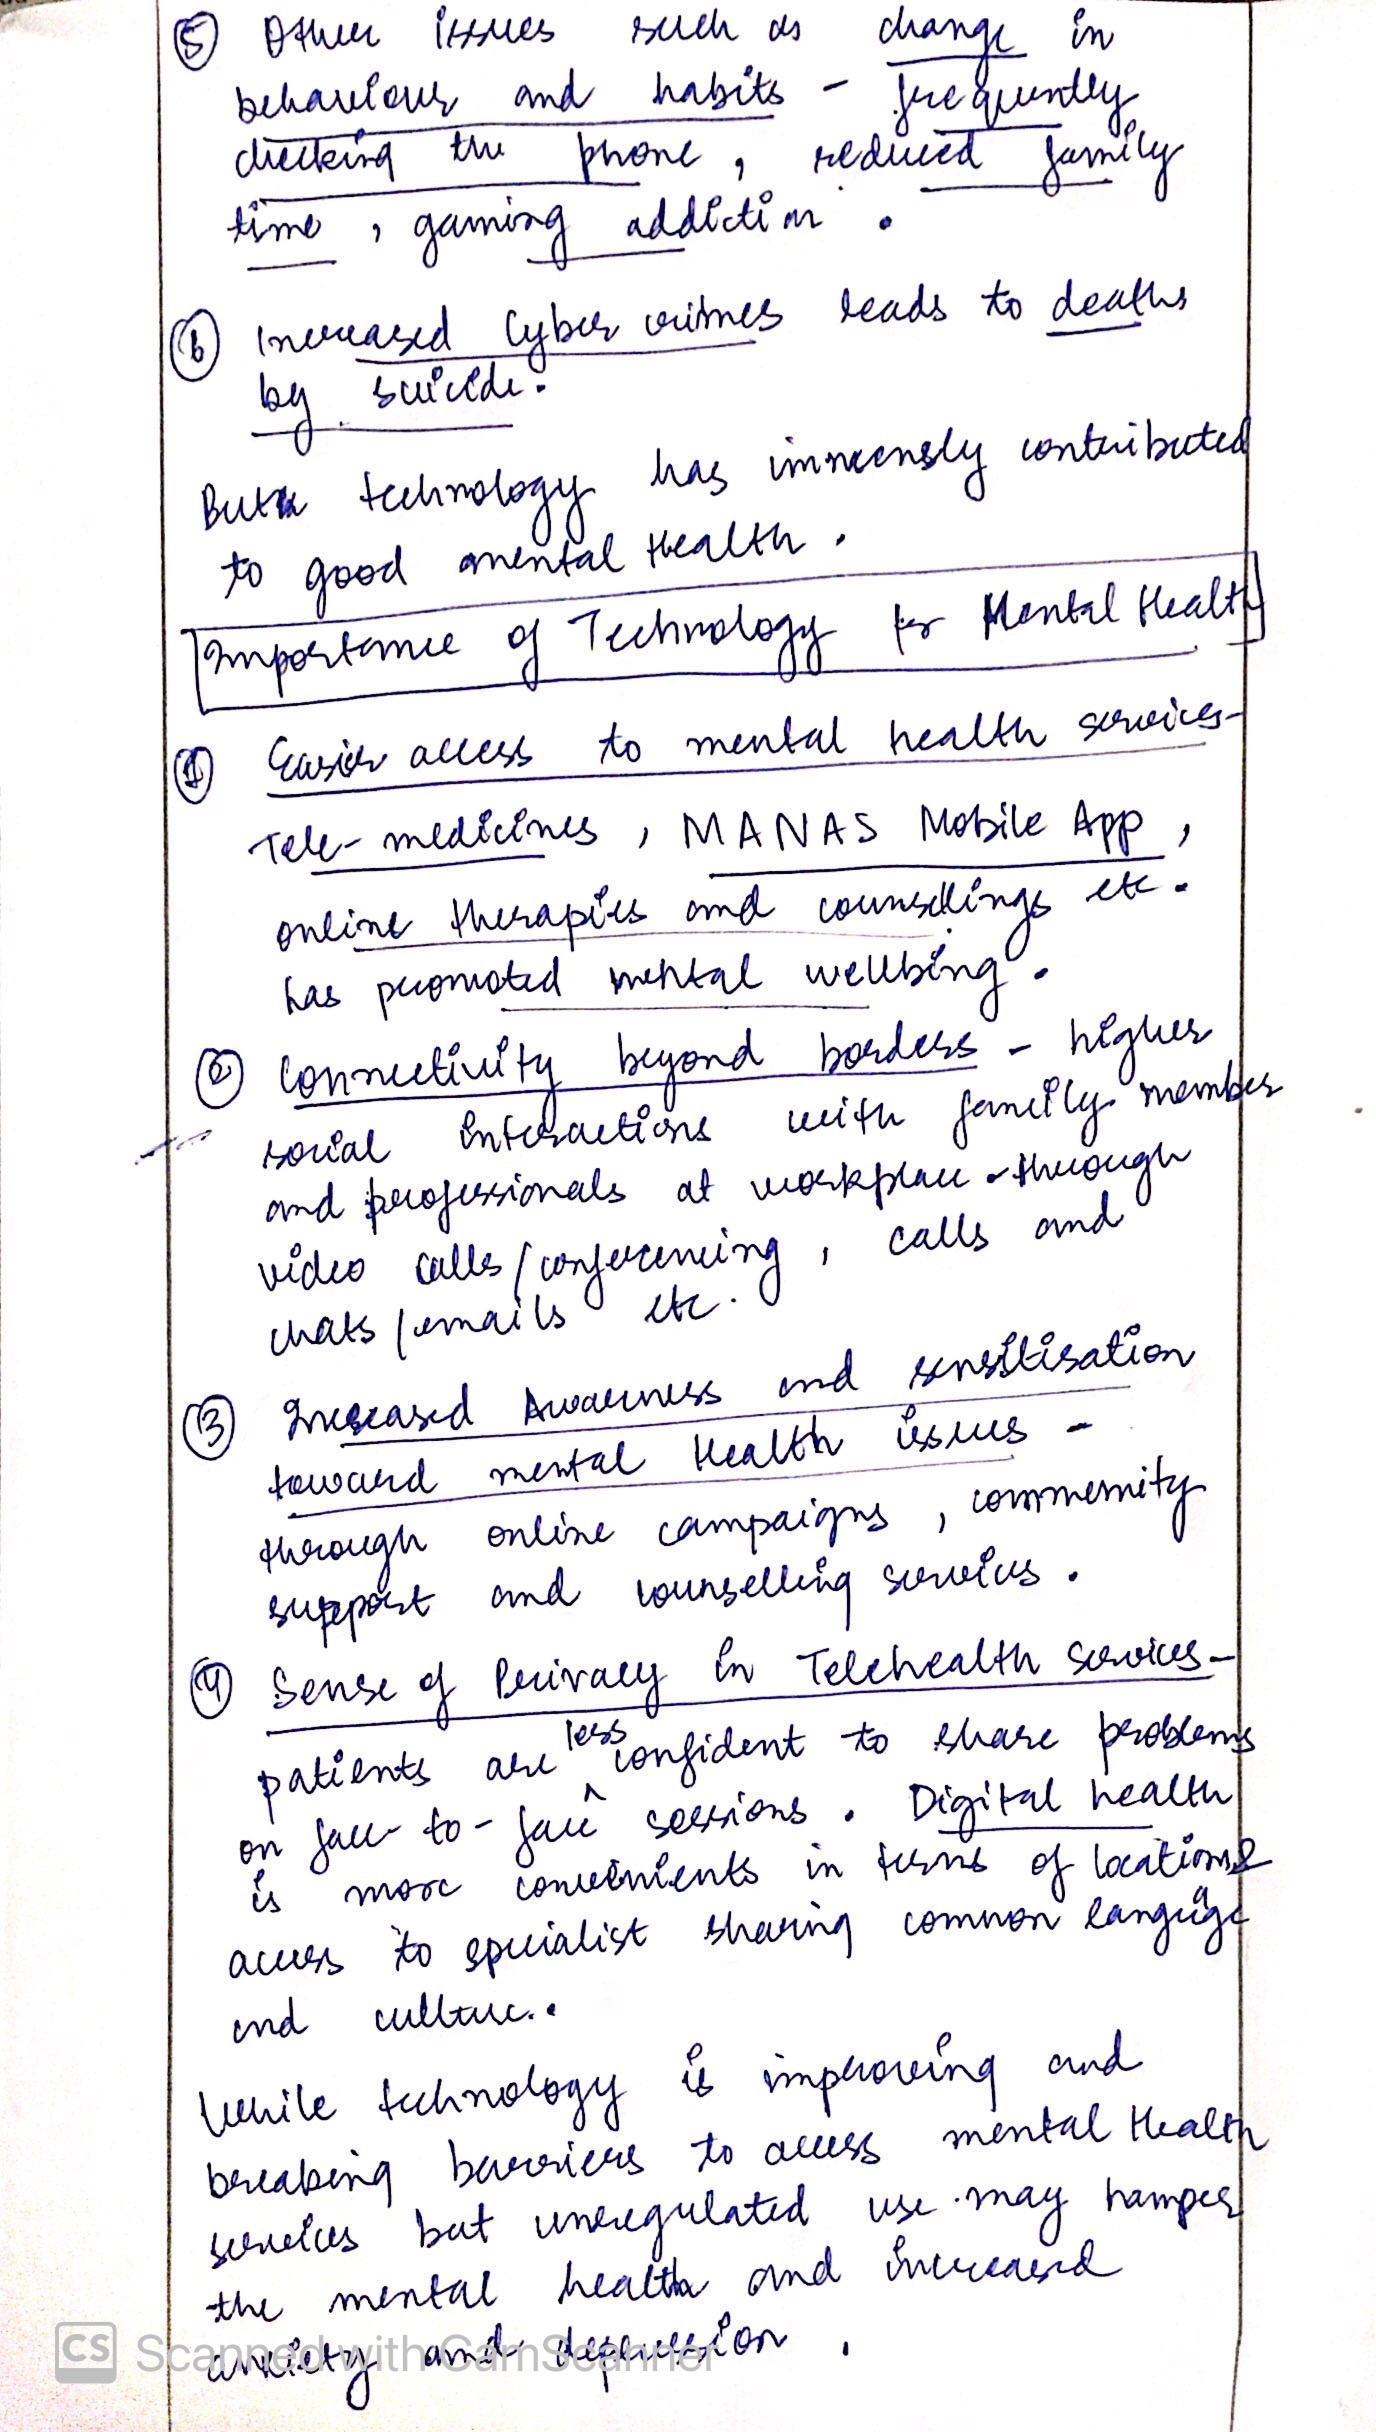 ⑤ Other issues such as change in
behaviour and habits - frequently
checking the phone, reduced family
time, gaming addiction.
⑥ Increased Cyber crimes leads to deaths
by suicide.
But technology has immensely contributed
to good mental Health.
Importance of Technology for Mental Health
① Easier access to mental health services-
Tele-medicines, MANAS Mobile App,
online therapies and counsellings etc.
has promoted mental wellbing.
② Connectivity beyond borders - higher
social interactions with family member
and professionals at workplace - through
video calls/conferencing, calls and
chats/emails etc.
③ Increased Awareness and sensitisation
toward mental Health issues -
through online campaigns, community
support and counselling services.
④ Sense of Privacy in Telehealth Services-
patients are less confident to share problems
on face-to-face sessions. Digital health
is more convenients in terms of location &
access to specialist sharing common language
and culture..
While technology is improving and
breaking barriers to access mental Health
services but unregulated use may hamper
the mental health and increased
anxiety and depression.
CS Scanned with CamScanner